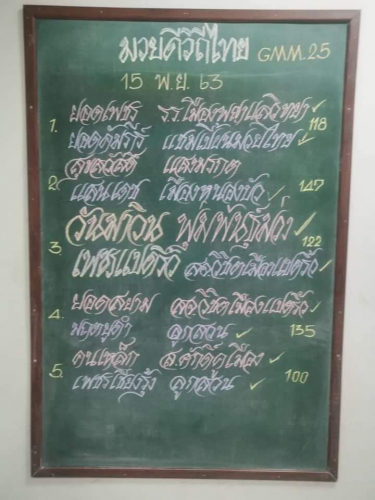 มวยดีวิถีไทย GMM.25
15 พ.ย. 63
1. ยอดเพชร รร.เมืองพลาญวิทยา ✓
118
แชมป์ มวยไทย ✓
2. สุขสวัสดิ์ แสงมรกต
แสนเดช เมืองหนองบัว ✓ 147
3. วันมาวิน พุ่มพันธุ์ม่วง ✓
122
เพชรแปดริ้ว ส.สมชัยเมืองแปดริ้ว ✓
4. ยอดสยาม เมืองแปดริ้ว ✓
ลูกสวน ✓ 135
5. คนเหล็ก อ.ศักดิ์เมือง ✓
เพชรเชียงรุ้ง ลูกสวน ✓ 100